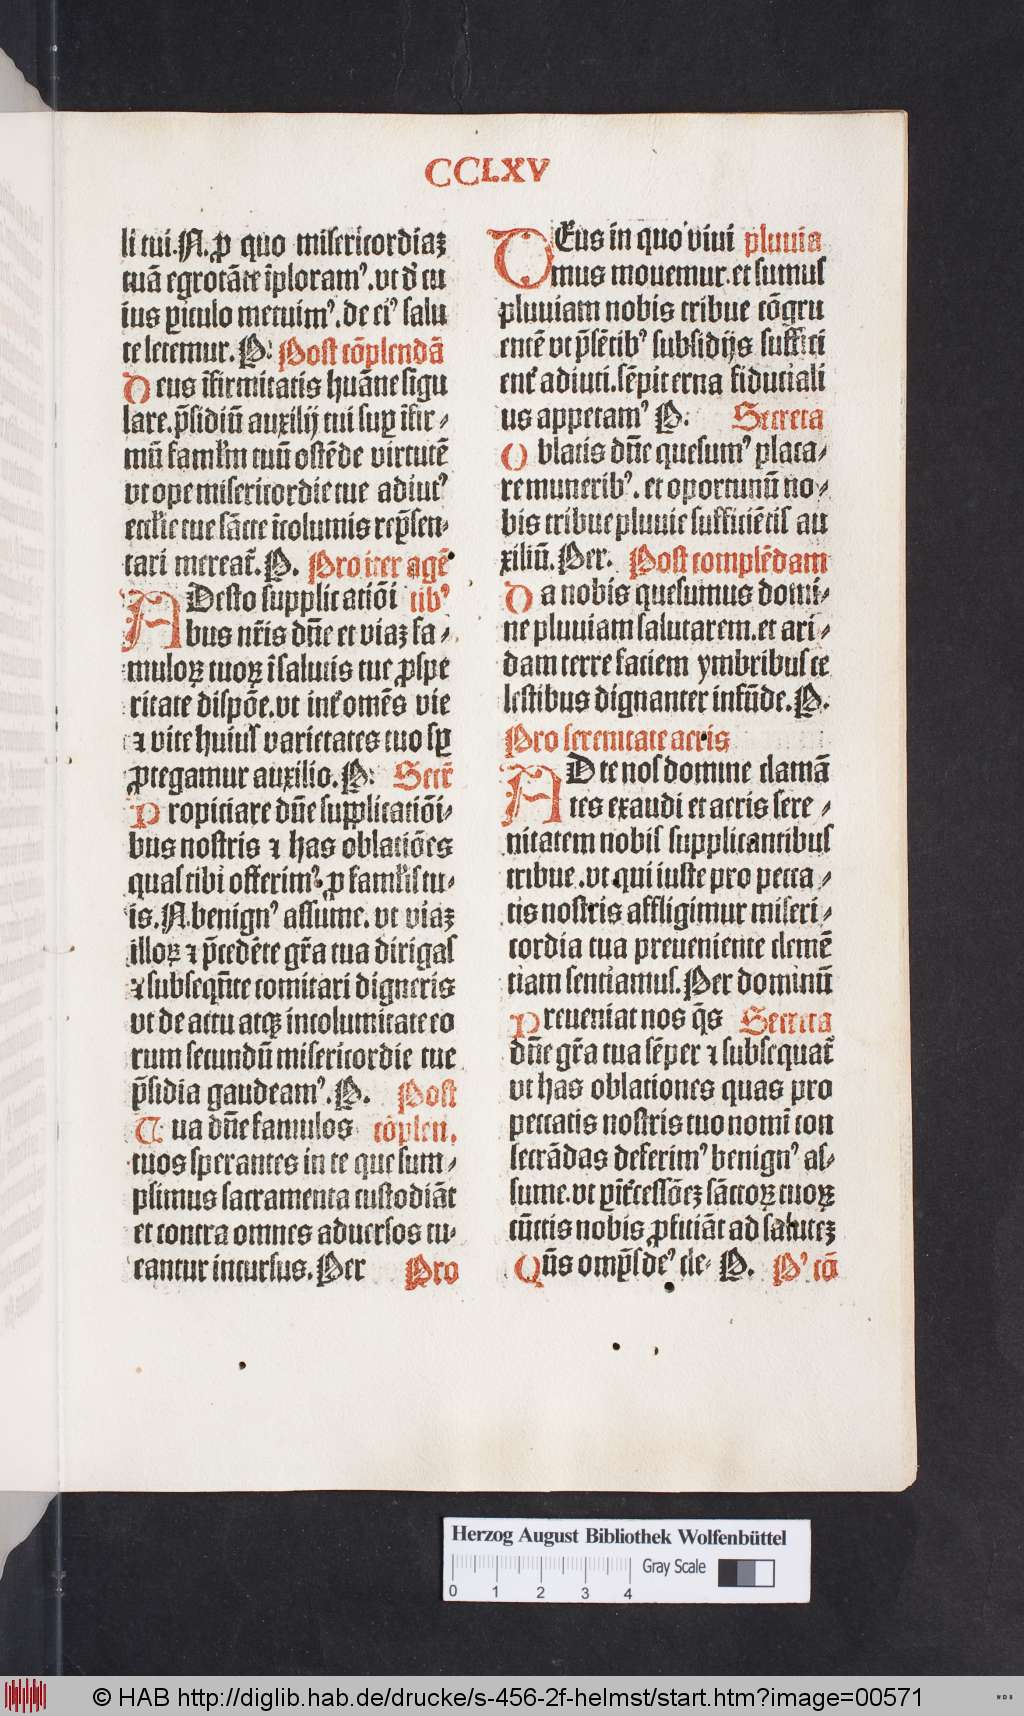 CCLXV
li tui. N. ꝓ quo misericordiaꝫ
tuā egrotāte īploramꝰ. vt d̄ tu
ius ꝑiculo metuimꝰ. de eiꝰ salu
te letemur. P: Post cōplendā
Deus īfirmitatis huāne sigu
lare. p̄sidiū auxilij tui suꝑ īfir-
mū famƚm tuū ostēde virtutē
vt ope misericordie tue adiutꝰ
eccƚie tue sācte īcolumis rep̄sen-
tari mereat̄. P. Pro iter agē
ADesto supplicatiōi tibꝰ
bus nr̄is dn̄e et viaꝫ fa-
muloꝝ tuoꝝ ī salutis tue ꝓspe
ritate dispōe. vt int̄ omēs vie
⁊ vite huius varietates tuo sꝑ
ꝓtegamur auxilio. P: Secr̄
Propiciare dn̄e supplicatiōi-
bus nostris ⁊ has oblatiōes
quas tibi offerimꝰ. ꝓ famƚis tu-
is. N. benignꝰ assume. vt viaꝫ
illoꝝ ⁊ p̄cedēte gr̄a tua dirigas
⁊ subseqn̄te comitari digneris
vt de actu atqꝫ incolumitate eo
rum secundū misericordie tue
p̄sidia gaudeamꝰ. P. Post
Tua dn̄e famulos cōplen.
tuos sperantes in te que sum-
psimus sacramenta custodiāt
et contra omnes aduersos tu-
eantur incursus. Per Pro
DEus in quo viui pluuia
mus mouemur. et sumus
pluuiam nobis tribue cōgru
entē vt p̄sētibꝰ subsidijs suffici
ent̄ adiuti. sēpiterna fiduciali
us appetamꝰ P: Secreta
Oblatis dn̄e quesumꝰ placa-
re muneribꝰ. et oportunū no-
bis tribue pluuie sufficiētis au
xiliū. Per. Post complēdam
Da nobis quesumus domi-
ne pluuiam salutarem. et ari-
dam terre faciem ymbribus ce
lestibus dignanter infūde. P.
Pro serenitate aeris
AD te nos domine clamā
tes exaudi et aeris sere-
nitatem nobis supplicantibus
tribue. vt qui iuste pro pecca-
tis nostris affligimur miseri-
cordia tua preueniente clemē
tiam sentiamus. Per dominū
Preueniat nos q̄s Secreta
dn̄e gr̄a tua sēper ⁊ subsequat̄
vt has oblationes quas pro
peccatis nostris tuo nomī con
secrādas deferimꝰ benignꝰ as-
sume. vt ꝑ īt̄cessōeꝫ sāctoꝝ tuoꝝ
cūctis nobis ꝓficiāt ad saluteꝫ
Qūs omp̄s deꝰ cle- P. Pꝰ cō
Herzog August Bibliothek Wolfenbüttel
Gray Scale
0 1 2 3 4
© HAB http://diglib.hab.de/drucke/s-456-2f-helmst/start.htm?image=00571